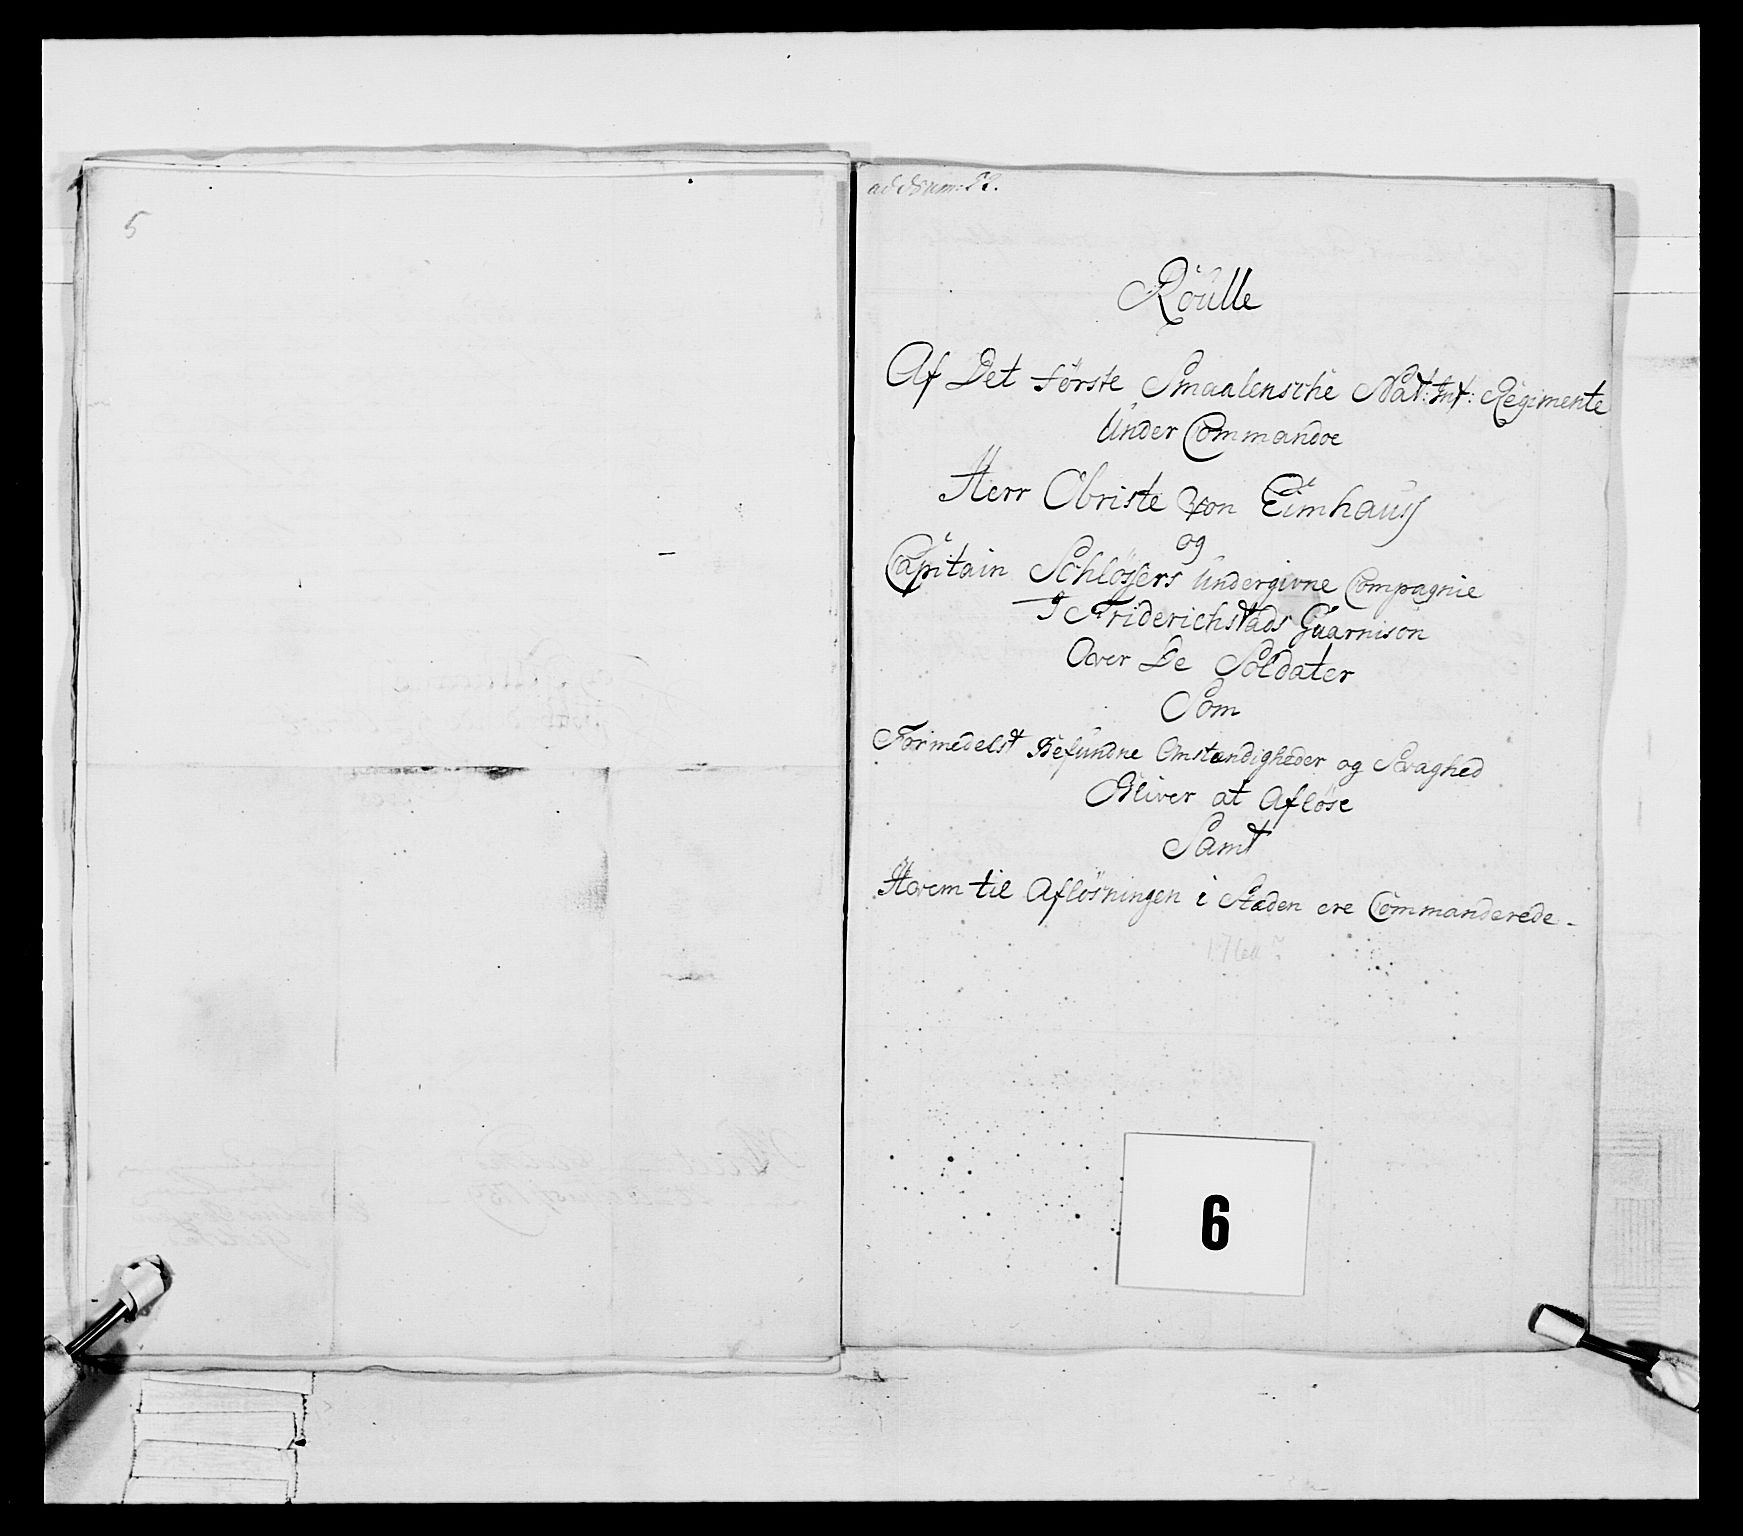 5
Roulle
Af Det Første Smaalensche Nat: Inf: Regimente
Under Commandoe
Herr Obriste von Eimhauss
og
Capitain Schløssers Undergivne Compagnie
I Friderichstads Guarnison
Over De Soldater
Som
Formedelst Befundne Omstændigheder og Svaghed
Bliver at Afløse
Samt
Hvem til Afløsningen i Stæden ere Commanderede -
6